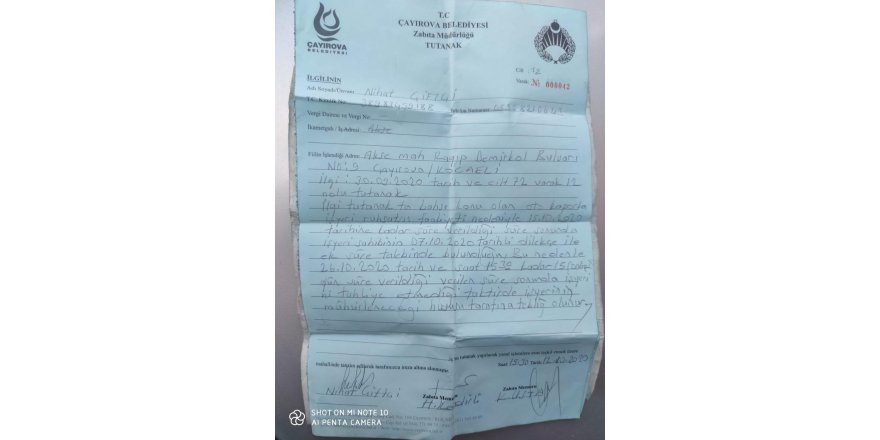 T.C
ÇAYIROVA BELEDİYESİ
Zabıta Müdürlüğü
TUTANAK
ÇAYIROVA
BELEDİYESİ
Cilt : 72
Varak: № 000042
İLGİLİNİN
Adı Soyadı/Ünvanı Nihat Çiftçi
T.C. Kimlik No:
Telefon Numarası:
Vergi Dairesi ve Vergi No:
İkametgah / İş Adresi: Akse
Fiilin İşlendiği Adres: Akse mah Kayıp Demirkol Bulvarı
No:9 Çayırova/KOCAELİ
İlgi: 30.09.2020 tarih ve cilt 72 varak 12
nolu tutanak
İlgi tutanak ta bahse konu olan oto kaporta
işyeri ruhsatsız faaliyeti nedeniyle 15.10.2020
tarihine kadar süre verildiği süre sonunda
işyeri sahibinin 07.10.2020 tarihli dilekçe ile
ek süre talebinde bulunduğun, Bu nedenle
26.10.2020 tarih ve saat 15:30 kadar 15 (onbeş)
gün süre verildiği verilen süre sonunda işyeri
ni tahliye etmediği taktirde işyerinin
mühürleneceği hususu tarafına tebliğ olunur
İş bu tutanak yapılacak yasal işlemlere esas teşkil etmek üzere
mahallinde tanzim edilerek tarafımızca imza altına alınmıştır.
Saat 15:30 Tarih 12.10.2020
Nihat Çiftçi
Zabıta Memuru
Zabıta Memuru
SHOT ON MI NOTE 10
AI PENTA CAMERA